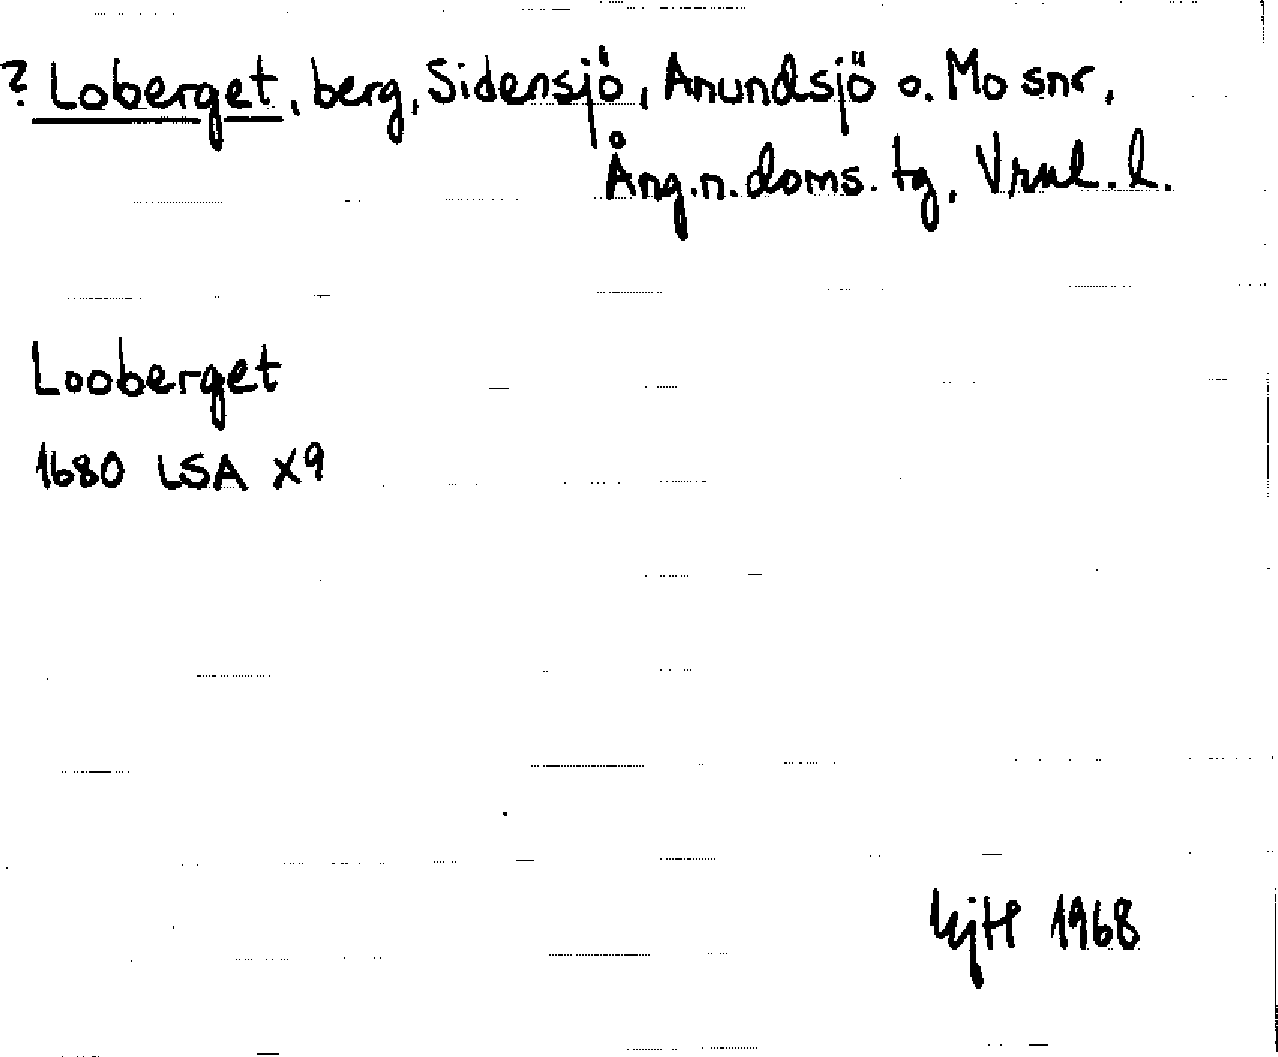 ? Loberget, berg, Sidensjö, Anundsjö o. Mo snr,
Ång.n.doms.tg, Vrnl.l.
Looberget
1680 LSA X9
1968